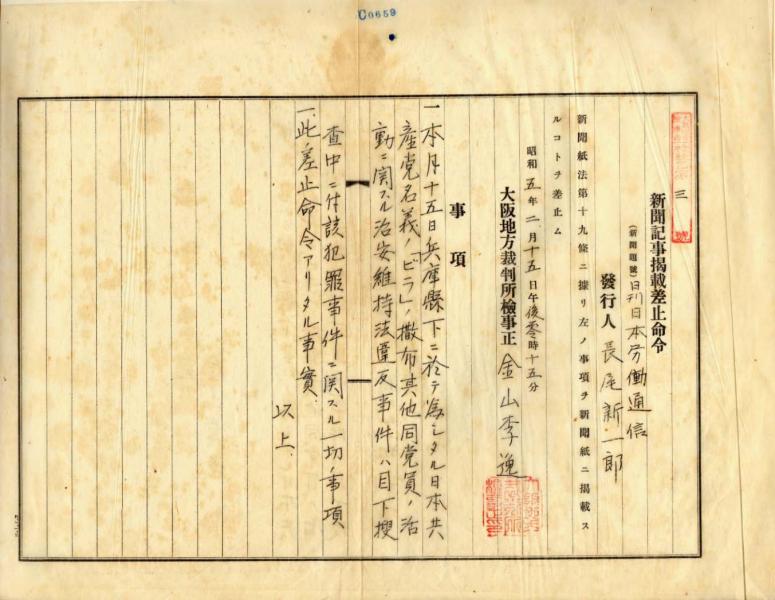 C0659
三
新聞記事揭載差止命令
(新聞題號)日刊日本労働通信
發行人 長尾新一郎
新聞紙法第十九條ニ據リ左ノ事項ヲ新聞紙ニ揭載ス
ルコトヲ差止ム
昭和五年二月十五日午後零時十五分
大阪地方裁判所檢事正 金山季逸
事項
一 本月十五日兵庫縣下ニ於テ為シタル日本共
産党名義ノ「ビラ」ノ撒布其他同党員ノ活
動ニ関スル治安維持法違反事件ハ目下搜
查中ニ付該犯罪事件ニ関スル一切ノ事項
一、此ノ差止命令アリタル事實
以上